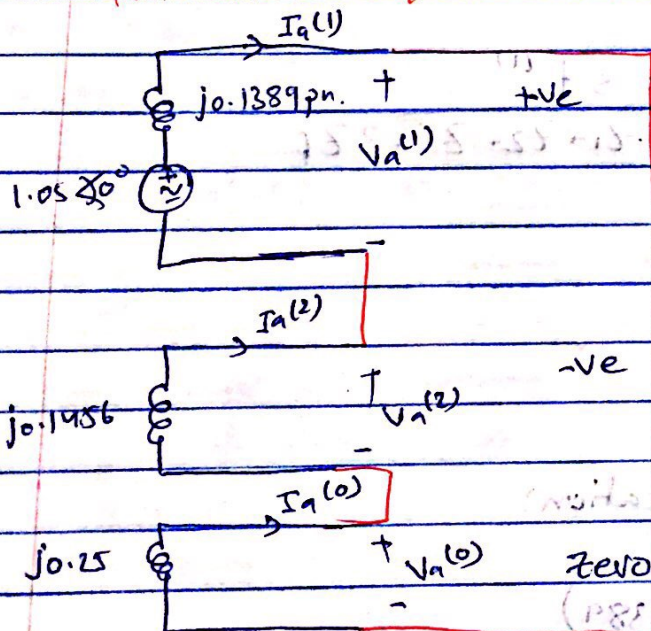 Ia(1)
j0.1389pn. + +ve
Va(1)
1.05∠0°
-
Ia(2)
-ve
+
j0.1456 Va(2)
-
Ia(0)
+ Va(0)
j0.25 Zero
-